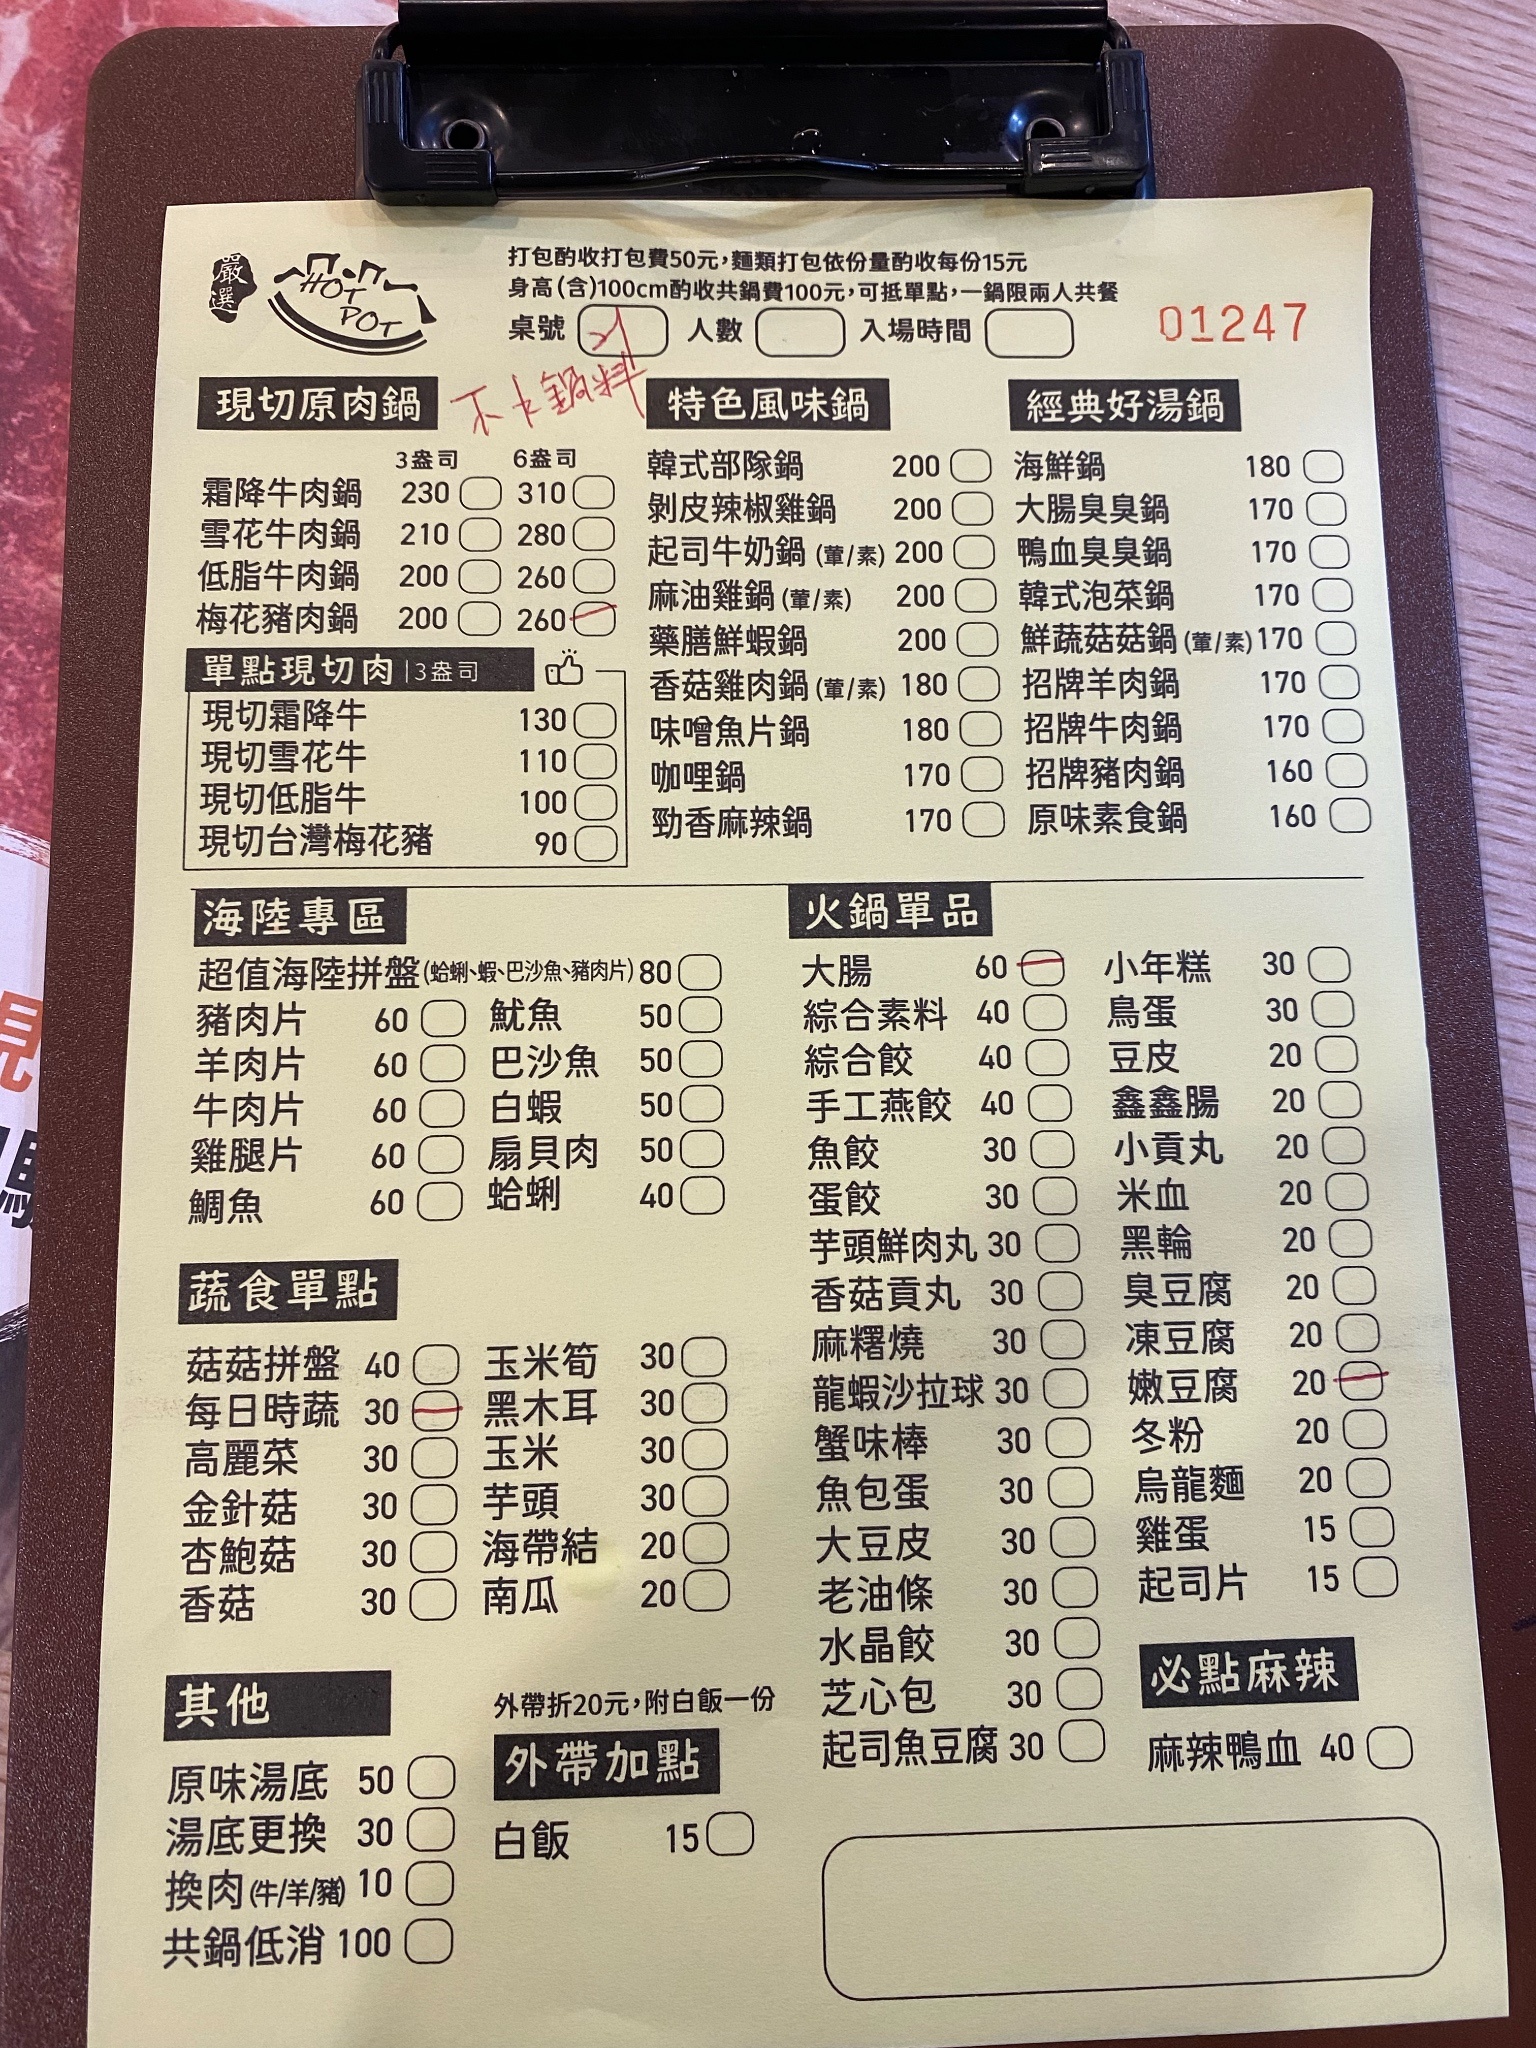 嚴選
HOT
POT
打包酌收打包費50元,麵類打包依份量酌收每份15元
身高(含)100cm酌收共鍋費100元,可抵單點,一鍋限兩人共餐
桌號 人數 入場時間
01247
鍋料
現切原肉鍋
3盎司 6盎司
霜降牛肉鍋 230 310
雪花牛肉鍋 210 280
低脂牛肉鍋 200 260
梅花豬肉鍋 200 260
單點現切肉|3盎司
現切霜降牛 130
現切雪花牛 110
現切低脂牛 100
現切台灣梅花豬 90
特色風味鍋
韓式部隊鍋 200
剝皮辣椒雞鍋 200
起司牛奶鍋(葷/素) 200
麻油雞鍋(葷/素) 200
藥膳鮮蝦鍋 200
香菇雞肉鍋(葷/素) 180
味噌魚片鍋 180
咖哩鍋 170
勁香麻辣鍋 170
經典好湯鍋
海鮮鍋 180
大腸臭臭鍋 170
鴨血臭臭鍋 170
韓式泡菜鍋 170
鮮蔬菇菇鍋(葷/素) 170
招牌羊肉鍋 170
招牌牛肉鍋 170
招牌豬肉鍋 160
原味素食鍋 160
海陸專區
超值海陸拼盤(蛤蜊、蝦、巴沙魚、豬肉片) 80
豬肉片 60 魷魚 50
羊肉片 60 巴沙魚 50
牛肉片 60 白蝦 50
雞腿片 60 扇貝肉 50
鯛魚 60 蛤蜊 40
蔬食單點
菇菇拼盤 40 玉米筍 30
每日時蔬 30 黑木耳 30
高麗菜 30 玉米 30
金針菇 30 芋頭 30
杏鮑菇 30 海帶結 20
香菇 30 南瓜 20
火鍋單品
大腸 60 小年糕 30
綜合素料 40 鳥蛋 30
綜合餃 40 豆皮 20
手工燕餃 40 鑫鑫腸 20
魚餃 30 小貢丸 20
蛋餃 30 米血 20
芋頭鮮肉丸 30 黑輪 20
香菇貢丸 30 臭豆腐 20
麻糬燒 30 凍豆腐 20
龍蝦沙拉球 30 嫩豆腐 20
蟹味棒 30 冬粉 20
魚包蛋 30 烏龍麵 20
大豆皮 30 雞蛋 15
老油條 30 起司片 15
水晶餃 30
芝心包 30
起司魚豆腐 30
必點麻辣
麻辣鴨血 40
其他
原味湯底 50
湯底更換 30
換肉(牛/羊/豬) 10
共鍋低消 100
外帶折20元,附白飯一份
外帶加點
白飯 15